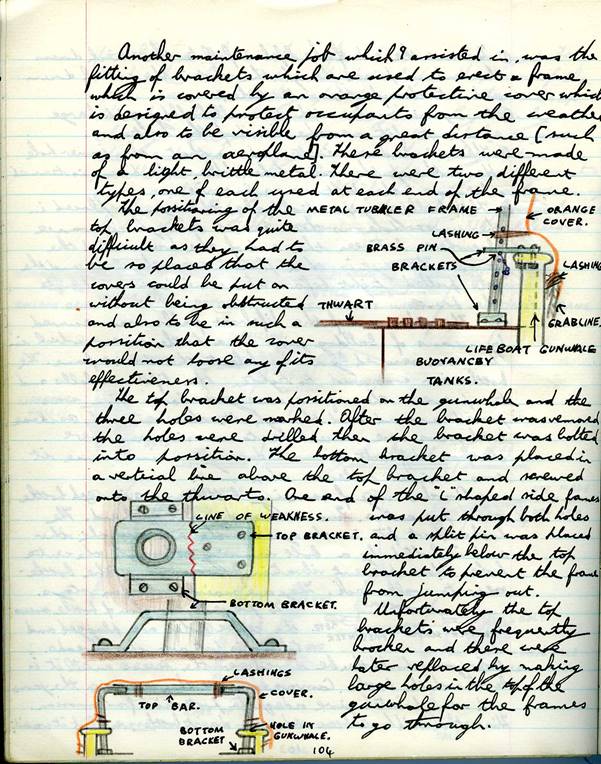 Another maintenance job which I assisted in, was the
fitting of brackets which are used to erect a frame
which is covered by an orange protective cover which
is designed to protect occupants from the weather
and also to be visible from a great distance [such
as from an aeroplane]. These brackets were made
of a light, brittle metal. There were two different
types, one of each used at each end of the frame.
The possitioning of the
top brackets was quite
difficult as they had to
be so placed that the
covers could be put on
without being obstructed
and also to be in such a
possition that the cover
would not loose any of its
effectiveness.
METAL TUBULER FRAME
ORANGE
COVER.
LASHING
BRASS PIN
BRACKETS
LASHING
THWART
GRABLINE.
LIFEBOAT GUNWHALE
BUOYANCEY
TANKS.
The top bracket was positioned on the gunwhale and the
three holes were marked. After the bracket was removed
the holes were drilled then the bracket was bolted
into possition. The bottom bracket was placed in
a vertical line above the top bracket and screwed
onto the thwarts. One end of the "L" shaped side frames
was put through both holes
and a split pin was placed
immediately below the top
bracket to prevent the frame
from jumping out.
Unfortunately the top
brackets were frequently
brocken and there were
later replaced by making
large holes in the top of the
gunwhale for the frames
to go through.
LINE OF WEAKNESS.
TOP BRACKET.
BOTTOM BRACKET.
LASHINGS
COVER.
TOP BAR.
HOLE IN
GUNWHALE.
BOTTOM
BRACKET
104